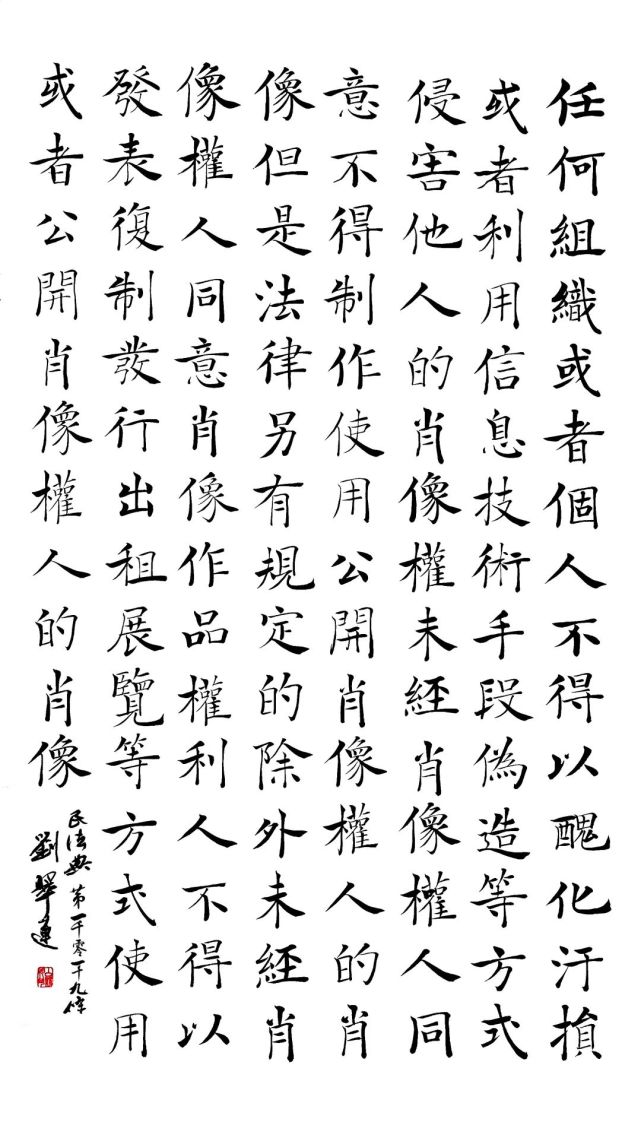 任何組織或者個人不得以醜化汙損
或者利用信息技術手段偽造等方式
侵害他人的肖像權未經肖像權人同
意不得制作使用公開肖像權人的肖
像但是法律另有規定的除外未經肖
像權人同意肖像作品權利人不得以
發表復制發行出租展覽等方式使用
或者公開肖像權人的肖像
民法典第一千零一十九條